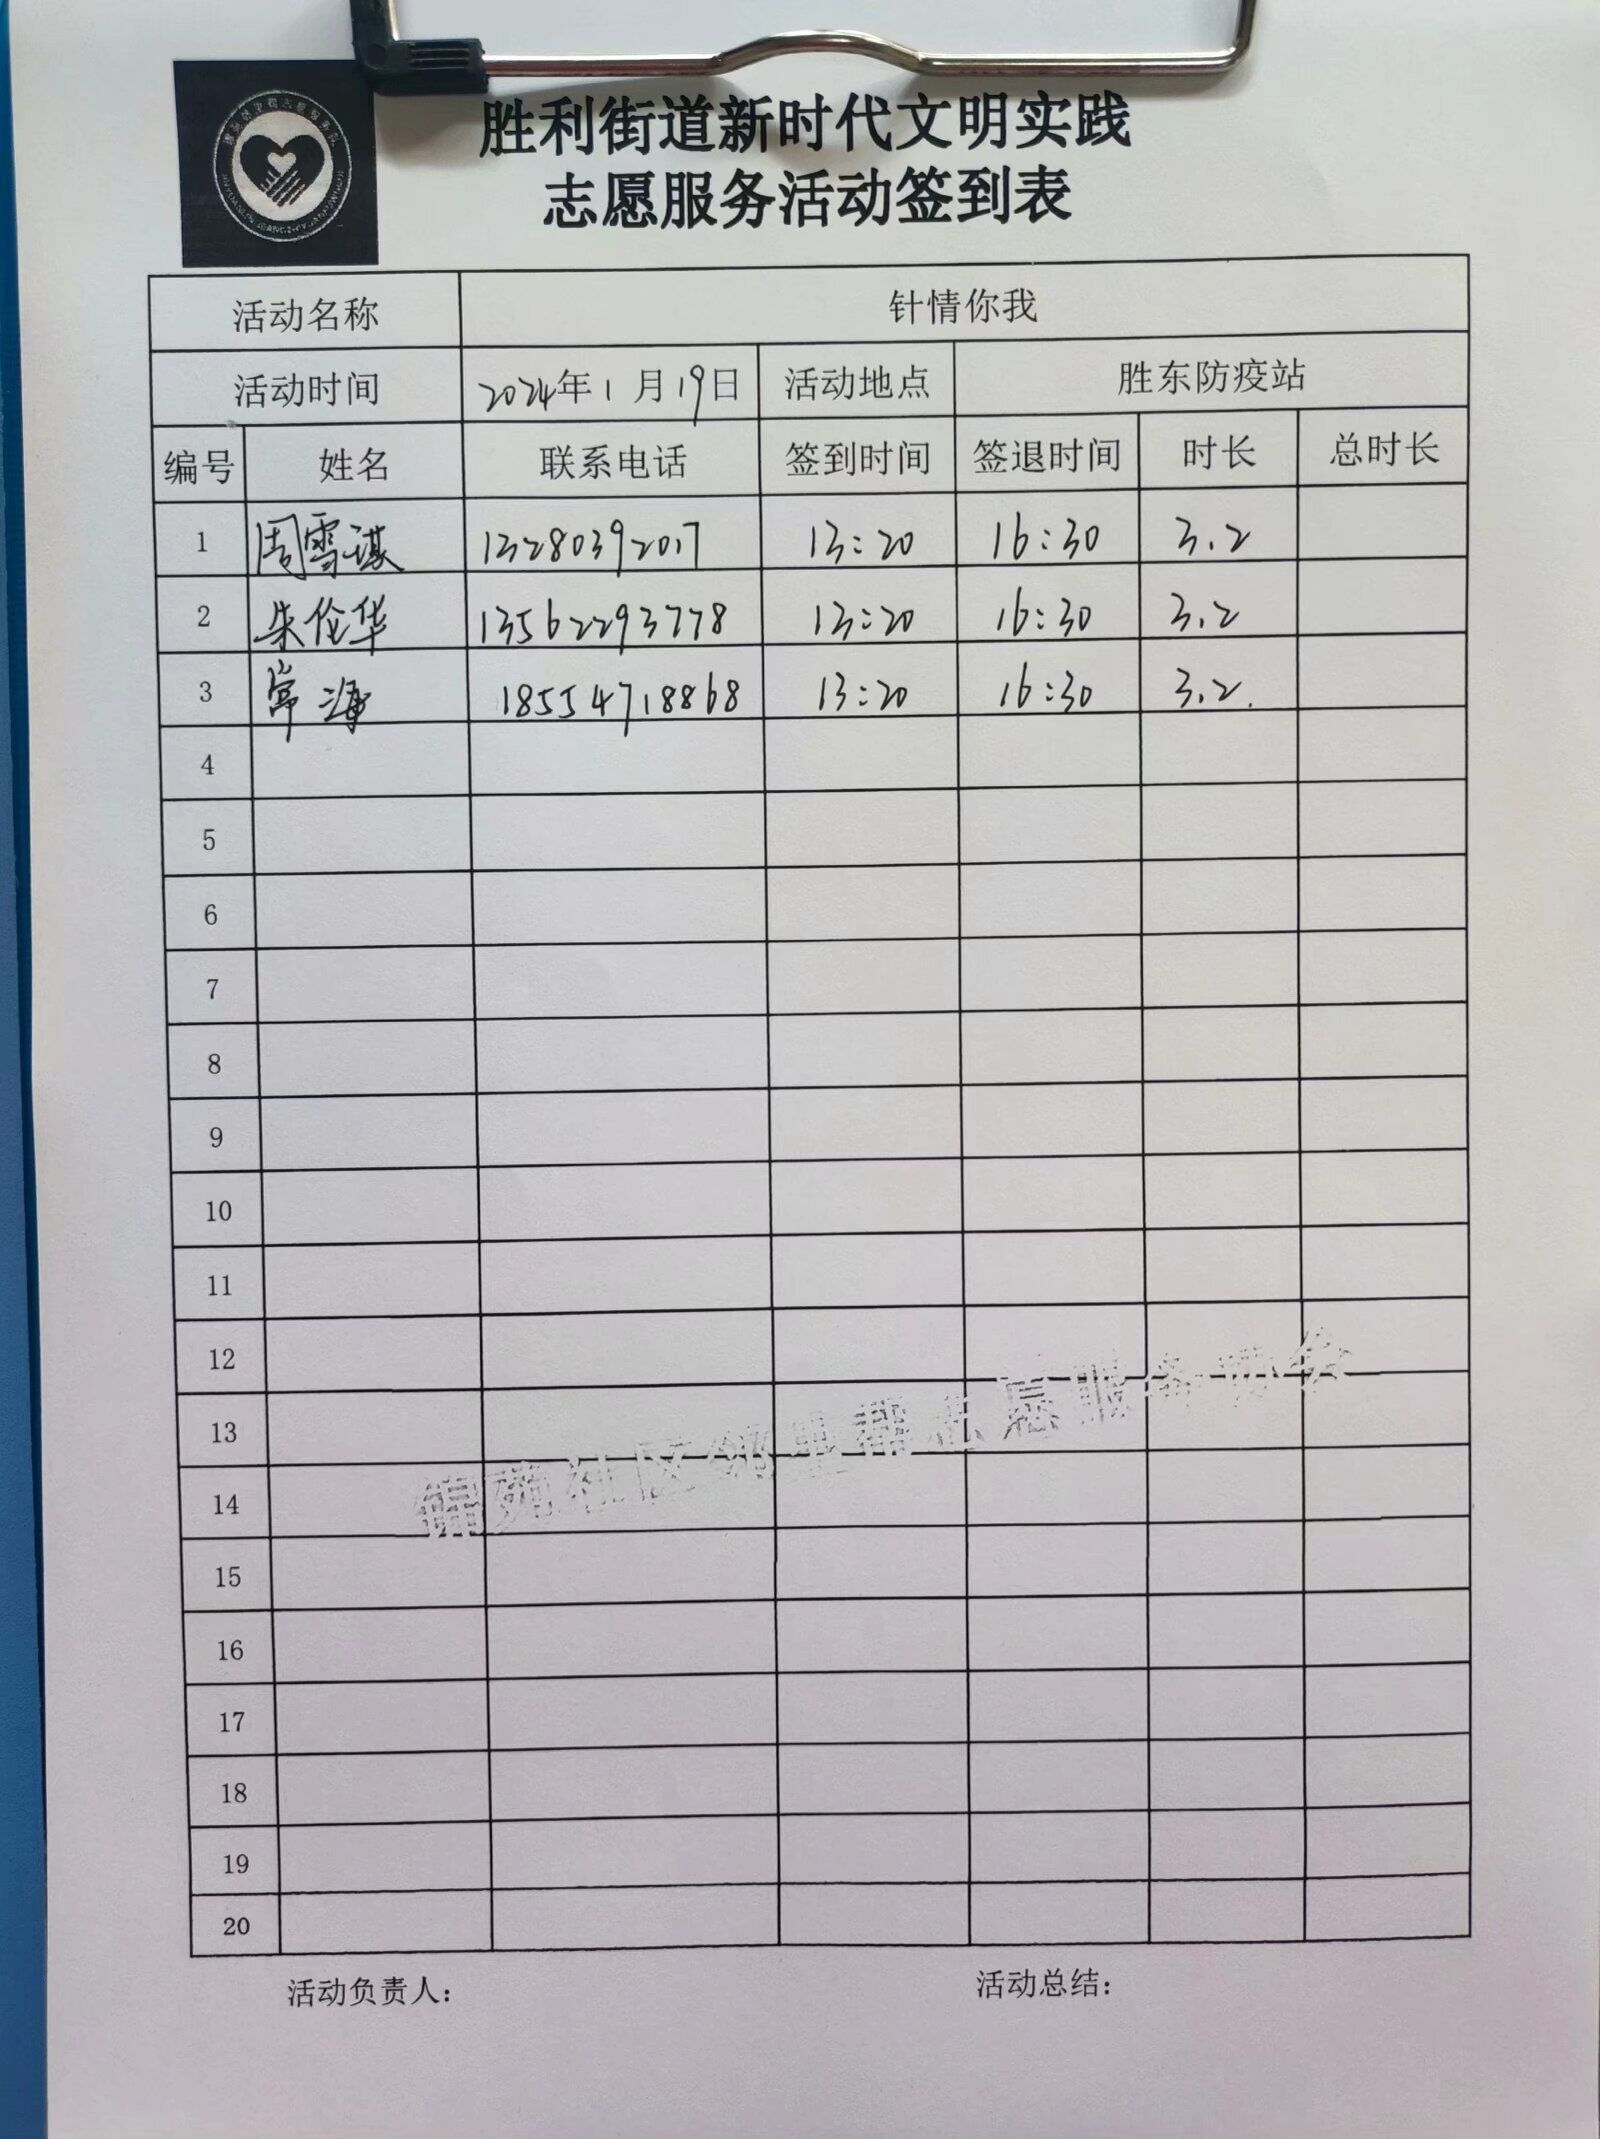 胜利街道新时代文明实践
志愿服务活动签到表
活动名称 针情你我
活动时间 2024年1月19日 活动地点 胜东防疫站
编号 姓名 联系电话 签到时间 签退时间 时长 总时长
1 周雪谋 13280392017 13:20 16:30 3.2
2 朱伦华 13562293778 13:20 16:30 3.2
3 常海 18554718868 13:20 16:30 3.2.
4
5
6
7
8
9
10
11
12
13
14
15
16
17
18
19
20
锦苑社区邻里帮志愿服务协会
活动负责人： 活动总结：